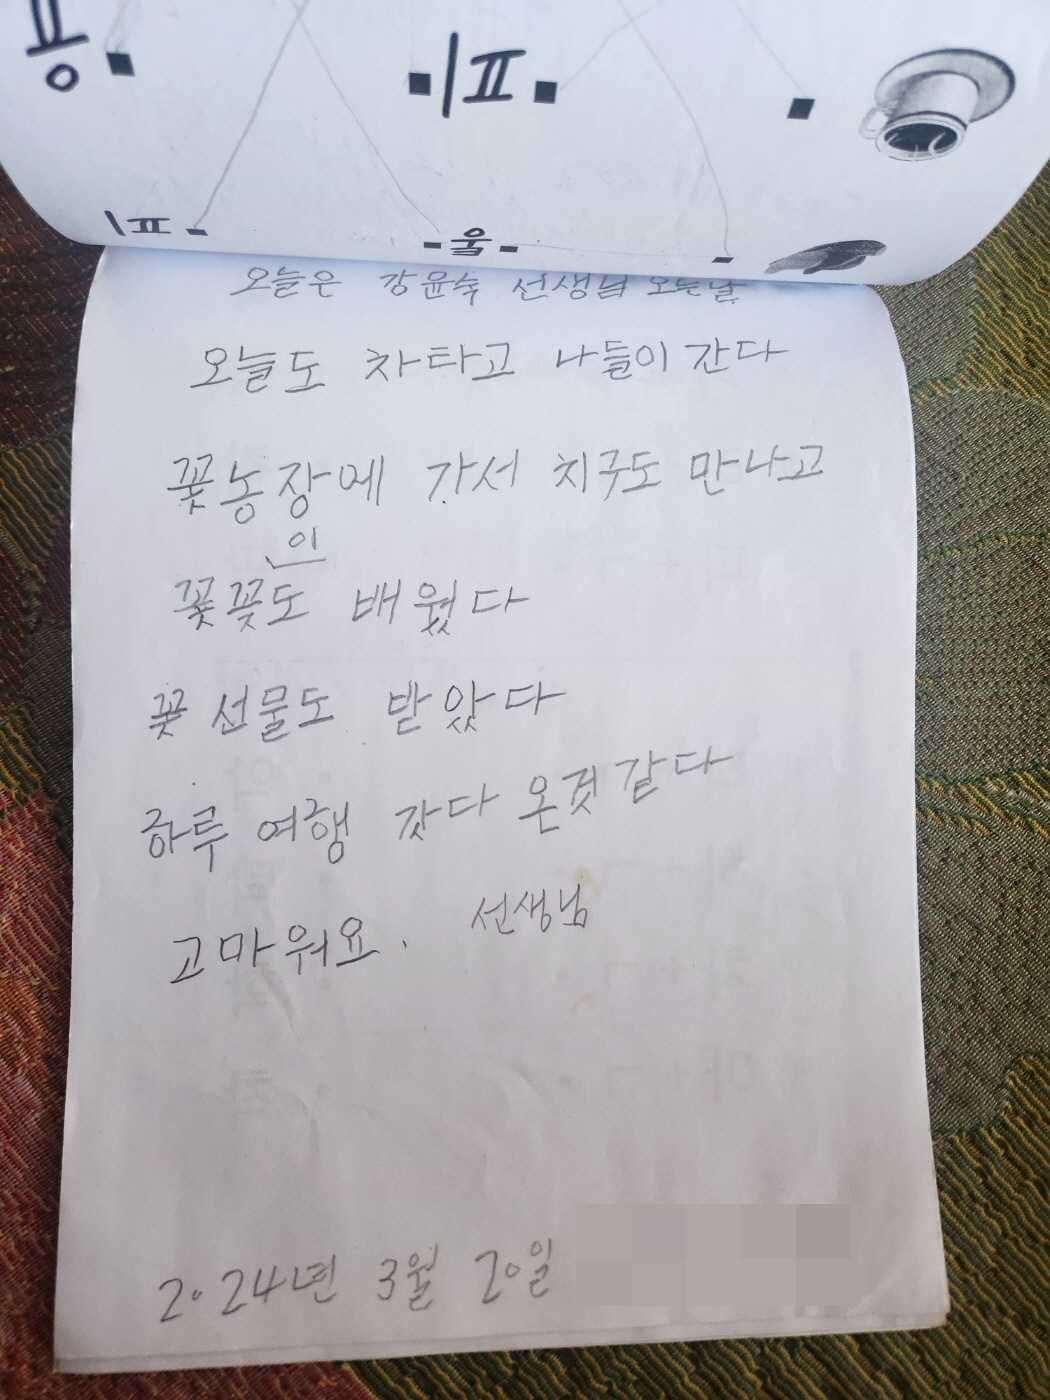 오늘은 강윤숙 선생님 오는날
오늘도 차타고 나들이 간다
꽃농장에 가서 치구도 만나고
이
꽃꽂도 배웠다
꽃 선물도 받았다
하루 여행 갔다 온것 같다
고마워요. 선생님
2024년 3월 20일